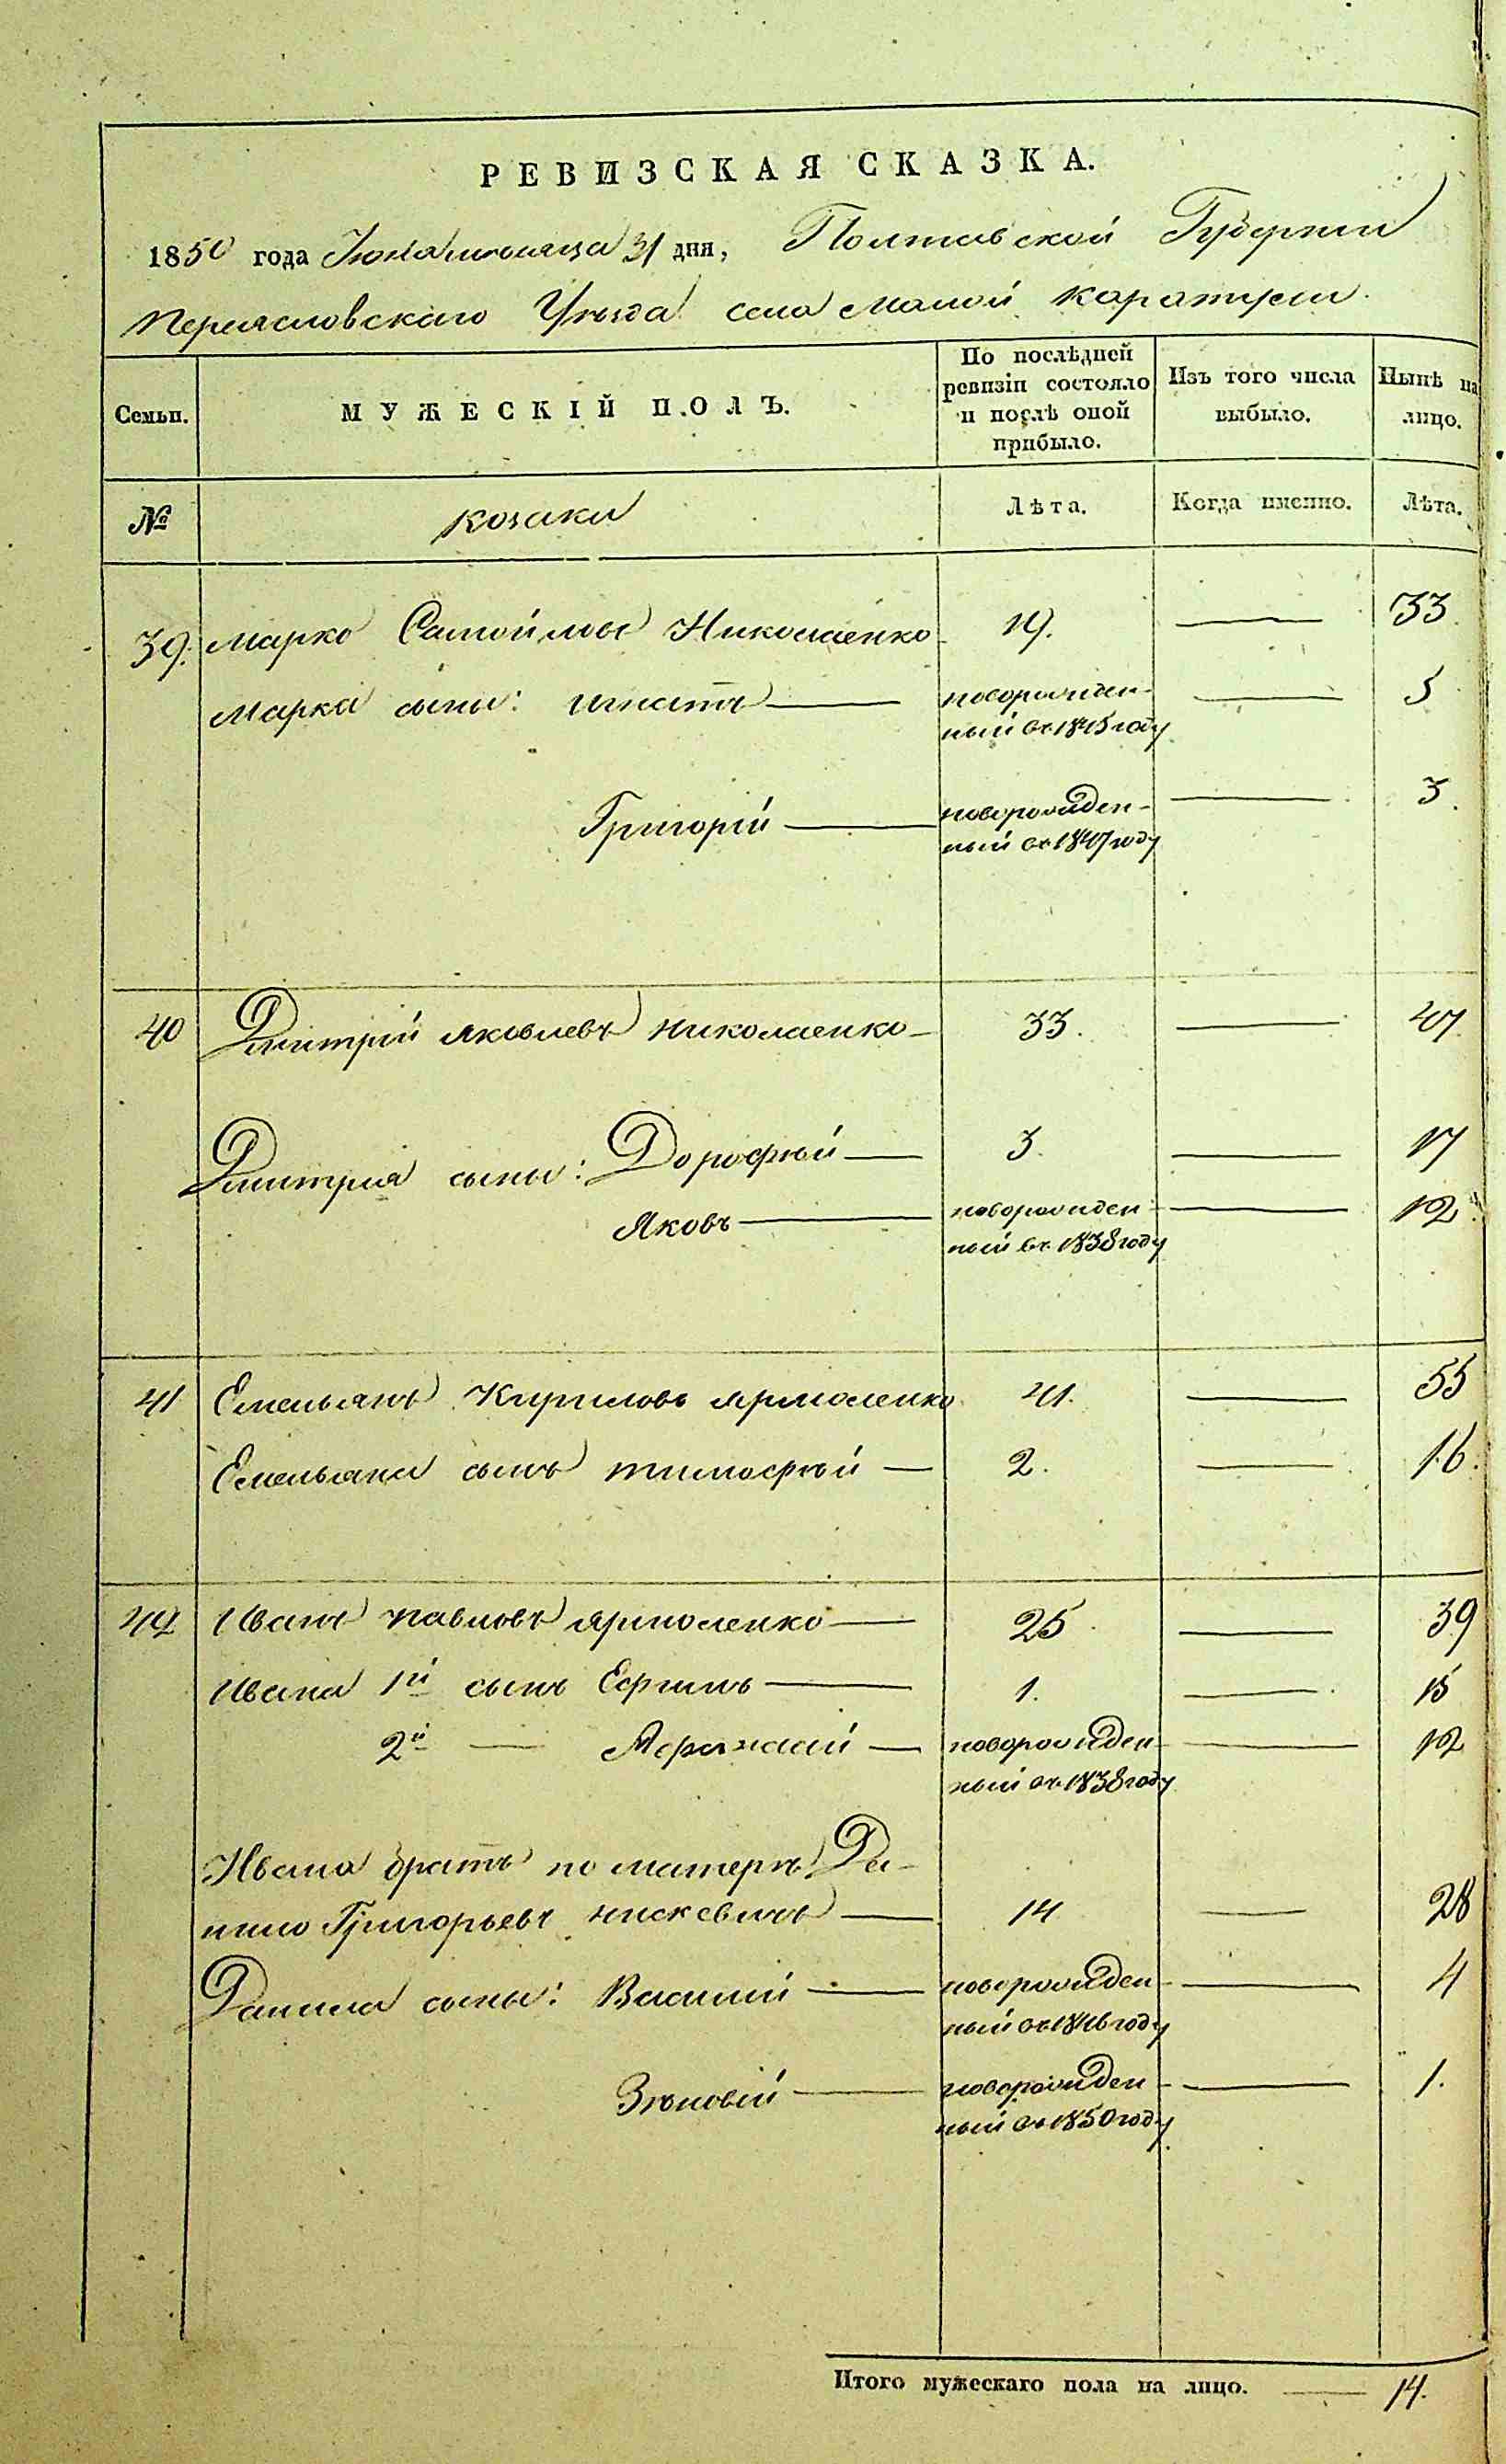 РЕВИЗСКАЯ СКАЗКА.
1850 года месяца 31 дня, Полтавской Губернии
Переяславского Уѣзда села малой каратули.
Семьи.
МУЖЕСКІЙ ПОЛЪ.
По послѣдней ревизіи состояло и послѣ оной прибыло.
Изъ того числа выбыло.
Нынѣ на лицо.
№
козаки
Лѣта.
Когда именно.
Лѣта.
39. Марко Самойловъ Николаенко 19. — 33.
Марка сыны: игнатъ — новорожден- — 5
ный въ 1845 году
Григорій — новорожден- — 3.
ный въ 1847 году
40 Дмитрій яковлевъ николаенко — 33. — 47
Дмитрія сыны: Дорофѣй — 3. — 17
Яковъ — новорожден- — 12
ный въ 1838 году
41 Емельянъ Кириловъ ярмоленко 41. — 55
Емельяна сынъ тимофѣй — 2. — 16.
42 Иванъ павловъ ярмоленко — 25. — 39
Ивана 1й сынъ Ефимъ — 1. — 15
2й — Афанасій — новорожден- — 12
ный въ 1838 году
Ивана братъ по матерѣ Да-
нило Григорьевъ — 14 — 28
Данила сыны: Василій — новорожден- — 4
ный въ 1846 году
Зѣновій — новорожден- — 1.
ный въ 1850 году
Итого мужескаго пола на лицо. — 14.